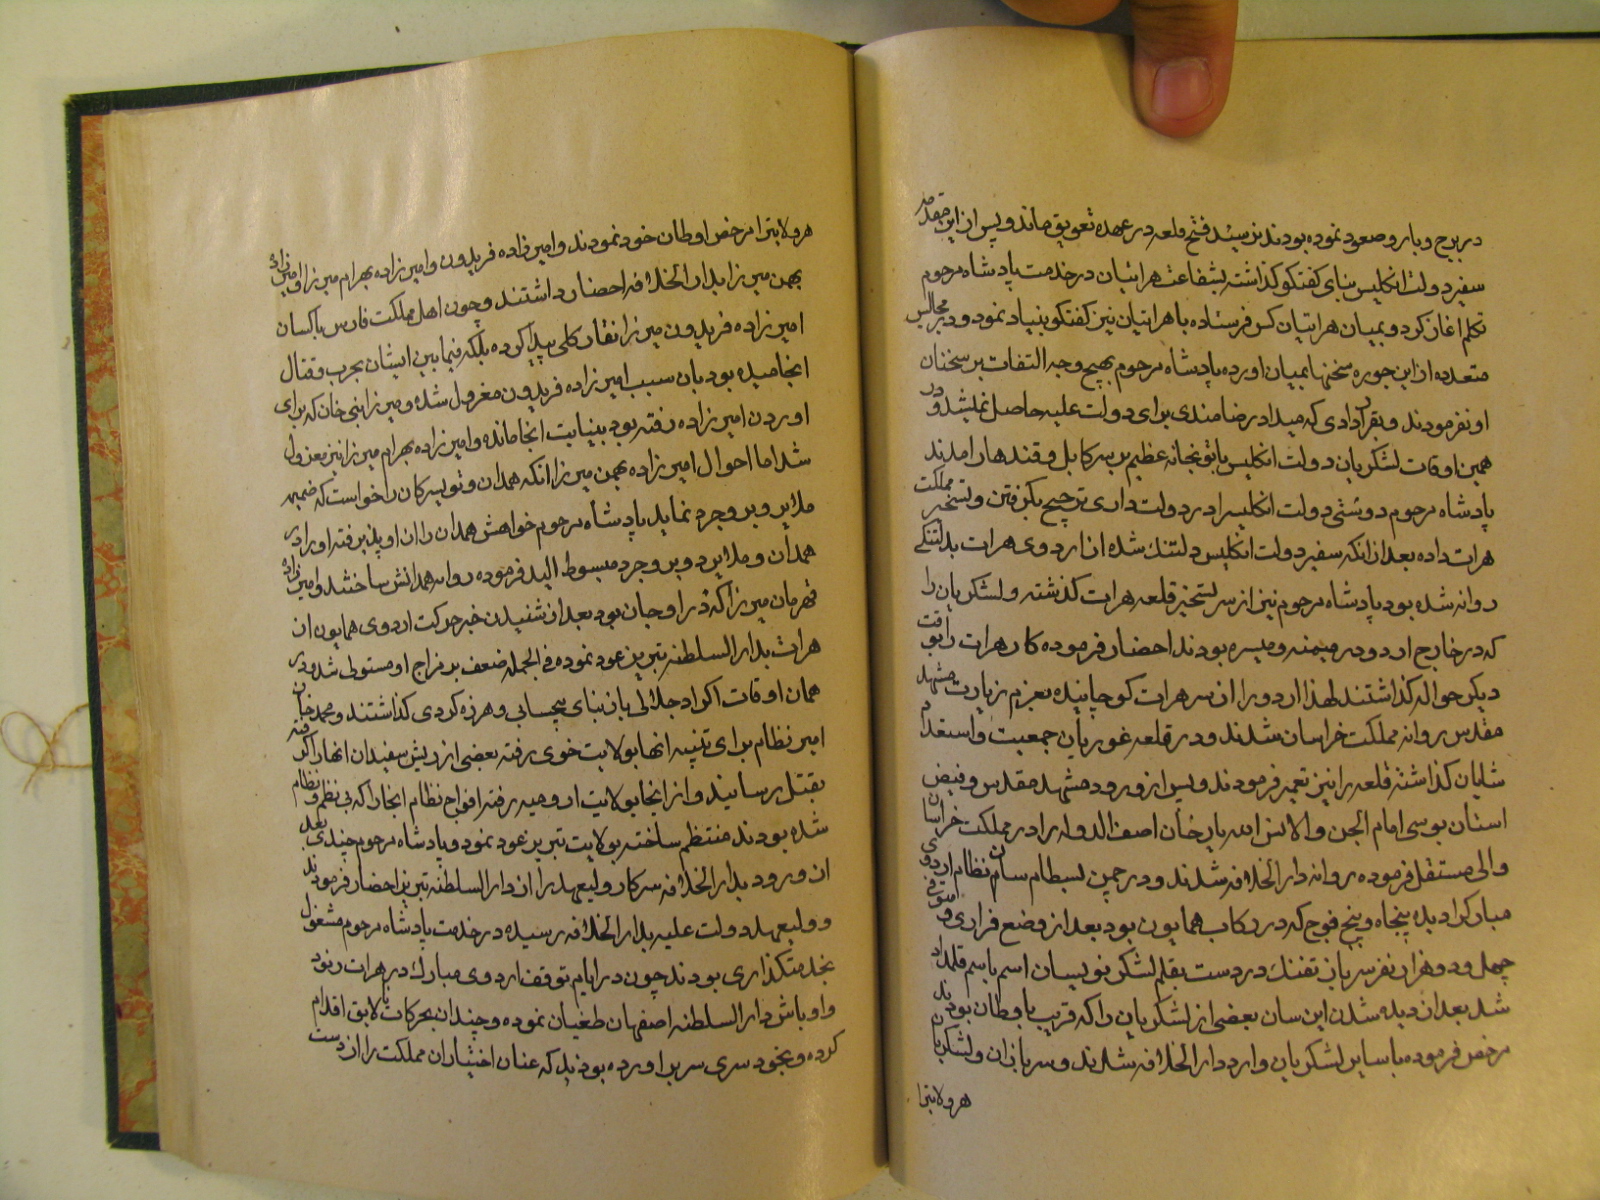 در برج و بارو صعود نموده بودند نرسید فتح قلعه در عهده تعویق ماند و پس از این مقدمه
سفیر دولت انکلیس بنای کفتکو کذاشته بشفاعت هراتیان در خدمت پادشاه مرحوم
تکلم اغاز کرد و بمیان هراتیان کس فرستاده با هراتیان نیز کفتکو بنیاد نمود و در مجالس
متعدده از این جوره سخنها بمیان اورده پادشاه مرحوم بهیچ وجه التفات بر سخنان
او نفرمودند و بقراردادی که میداد رضامندی برای دولت علیه حاصل نمیشد و در
همین اوقات لشکریان دولت انکلیس با توبخانه عظیم بر سر کابل و قندهار امدند
پادشاه مرحوم دوستی دولت انکلیس را در دولت داری ترجیح بکرفتن و تسخیر مملکت
هرات داده بعد از انکه سفیر دولت انکلیس دلتنک شده از اردوی هرات بدلتنکی
روانه شده بود پادشاه مرحوم نیز از سر تسخیر قلعه هرات کذشته و لشکریان را
که در خارج اردو در میمنه و میسره بودند احضار فرموده کار هرات را بوقت
دیکر حواله کذاشتند لهذا اردو را از سر هرات کوچانیده بعزم زیارت مشهد
مقدس روانه مملکت خراسان شدند و در قلعه غوریان جمعیت و استعداد
شایان کذاشته قلعه را نیز تعمیر فرمودند و پس از ورود مشهد مقدس و فیض
استان بوسی امام الجن و الانس الله یار خان اصف الدوله را در مملکت خراسان
والی مستقل فرموده روانه دار الخلافه شدند و در چمن بسطام سان نظام اردوی
مبارک را دیده پنجاه و پنج فوج که در رکاب همایون بود بعد از وضع فراری و متوفی
چهل و دو هزار نفر سرباز تفنک در دست بقلم لشکر نویسان اسم باسم قلمداد
شد بعد از دیده شدن این سان بعضی از لشکریان را که قریب باوطان بودند
مرخص فرموده با سایر لشکریان وارد دار الخلافه شدند و سربازان و لشکریان
هر ولایترا
هر ولایترا مرخص اوطان خود نمودند و امیر زاده فریدون و امیر زاده بهرام میرزا و امیر زاده
بهمن میرزا بدار الخلافه احضار داشتند و چون اهل مملکت فارس با کسان
امیر زاده فریدون میرزا نقار کلی پیدا کرده بلکه فیمابین ایشان بحرب و قتال
انجامیده بود بان سبب امیر زاده فریدون معزول شده و میرزا نبی خان که برای
اوردن امیر زاده رفته بود بنیابت انجا مانده و امیر زاده بهرام میرزا نیز معزول
شد اما احوال امیر زاده بهمن میرزا انکه همدان و تویسرکان را خواست که ضمیمه
ملایر و بروجرد نماید پادشاه مرحوم خواهش همدان را از او پذیرفته او را در
همدان و ملایر و بروجرد مبسوط الید فرموده روانه همدانش ساختند و امیر زاده
قهرمان میرزا که در اوجان بود بعد از شنیدن خبر حرکت اردوی همایون از
هرات بدار السلطنه تبریز عود نموده فی الجمله ضعف بر مزاج او مستولی شد و در
همان اوقات اکراد جلالی باز بنای بیحسابی و هرزه کردی کذاشتند و محمد خان
امیر نظام برای تنبیه انها بولایت خوی رفته بعضی از ریش سفیدان انها را کرفته
بقتل رسانید و از انجا بولایت ارومیه رفته افواج نظام انجا را که بی نظم و نظام
شده بودند منتظم ساخته بولایت تبریز عود نمود و پادشاه مرحوم چندی بعد
از ورود بدار الخلافه سرکار ولیعهد را از دار السلطنه تبریز احضار فرمودند
و ولیعهد دولت علیه بدار الخلافه رسیده در خدمت پادشاه مرحوم مشغول
بخدمتکذاری بودند چون در ایام توقف اردوی مبارک در هرات رنود
و اوباش دار السلطنه اصفهان طغیان نموده و چندان بحرکات نالایق اقدام
کرده و بخود سری سر بر اورده بودند که عنان اختیار ان مملکت را از دست